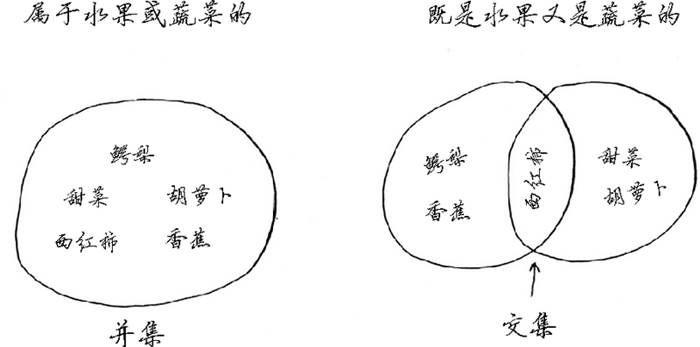 属于水果或蔬菜的
鳄梨
甜菜 胡萝卜
西红柿 香蕉
并集
既是水果又是蔬菜的
鳄梨
香蕉
西红柿
甜菜
胡萝卜
交集